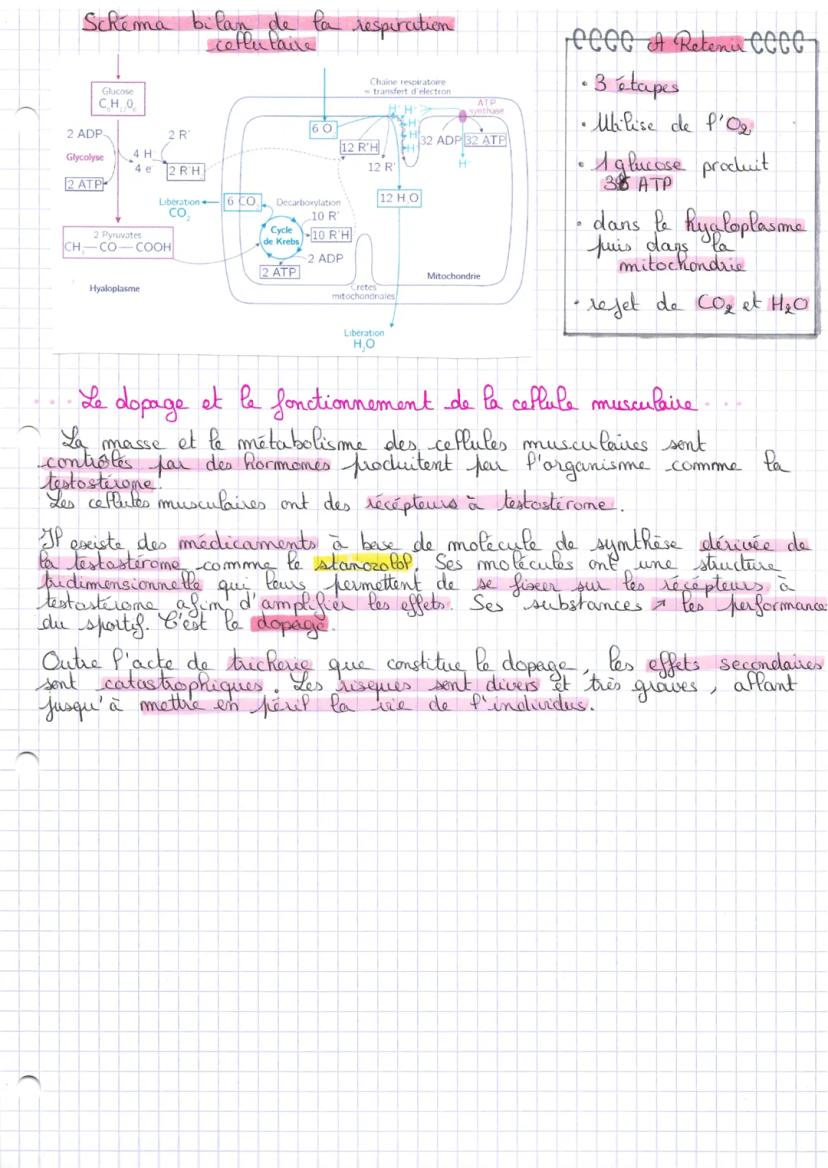 Schéma bilan de la respiration
cellulaire
Glucose
C₆H₁₂O₆
2 ADP
2 R'
Glycolyse
4 H
4 e
2 R'H
2 ATP
2 Pyruvates
CH₃—CO—COOH
Hyaloplasme
Chaîne respiratoire
= transfert d'électron
ATP
synthase
6 O₂
12 R'H
12 R'
32 ADP
32 ATP
H⁺
12 H₂O
Libération
CO₂
6 CO₂
Décarboxylation
10 R'
10 R'H
Cycle
de Krebs
2 ADP
2 ATP
Crêtes
mitochondriales
Mitochondrie
Libération
H₂O
A Retenir
• 3 étapes
• Utilise de l'O₂
• 1 glucose produit
36 ATP
• dans le hyaloplasme
puis dans la
mitochondrie
• rejet de CO₂ et H₂O
... Le dopage et le fonctionnement de la cellule musculaire ...
La masse et le métabolisme des cellules musculaires sont
contrôlés par des hormones produitent par l'organisme comme la
testostérone.
Les cellules musculaires ont des récépteurs à testostérone.
Il existe des médicaments à base de molécule de synthèse dérivée de
la testostérone comme le stanozolol. Ses molécules ont une structure
tridimensionnelle qui leurs permettent de se fixer sur les récépteurs à
testostérone afin d'amplifier les effets. Ses substances ↗ les performance
du sportif. C'est le dopage.
Outre l'acte de tricherie que constitue le dopage, les effets secondaires
sont catastrophiques. Les risques sont divers et très graves, allant
jusqu'à mettre en péril la vie de l'individus.